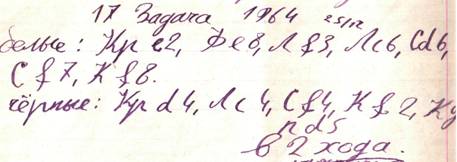 17 Задача 1964 25/IV
белые: Кр e2, Фe8, Лf3, Лc6, Cd6,
Cf7, Кf8.
чёрные: Кр d4, Лc4, Cf4, Кf2, Кg
п d5
в 2 хода.